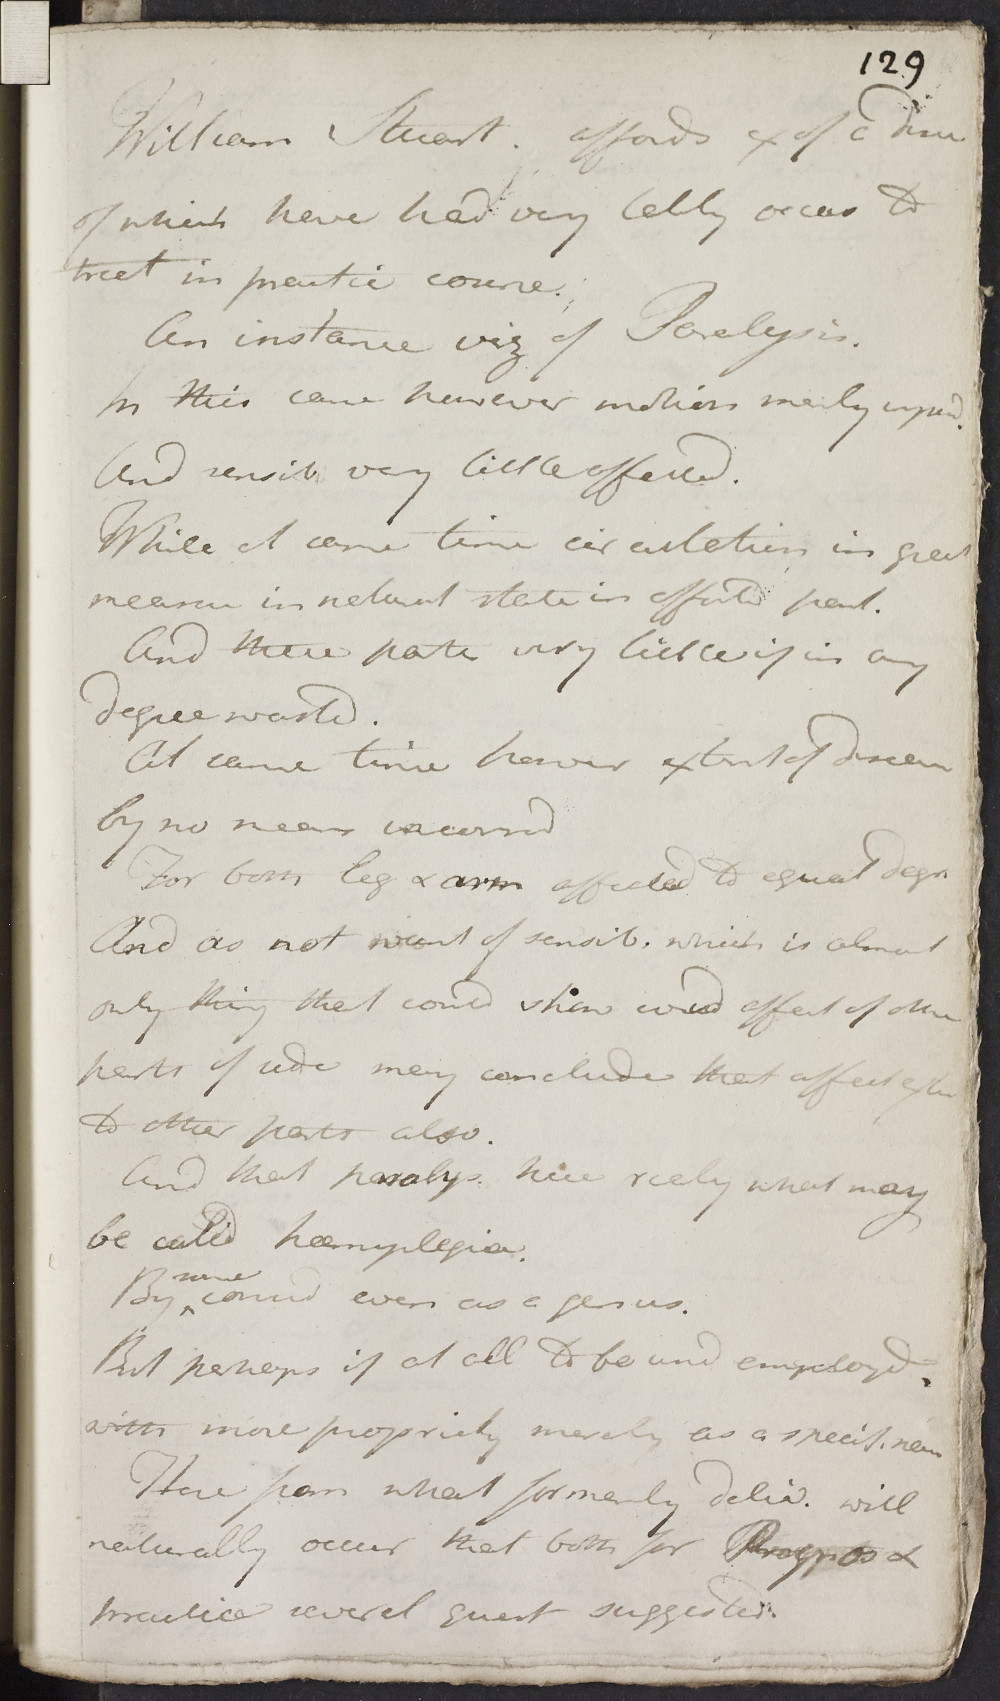 129
William Stuart. affords ex of a disea
of which have had very lately occas to
treat in practic course.
An instance viz of Paralysis.
In this case however motion merely injurd.
And sensib. very little affected.
While at same time circulation in great
measure in natural state in affected part.
And these parts very little if in any
degree wasted.
At same time however extent of disease
by no means
For both leg & arm affected to equal degr
And as not want of sensib. which is almost
only thing that could show affect of other
parts of side may conclude that affect
to other parts also.
And that paralys. here really what may
be called hæmyplegia.
By some considd even as a genus.
But perhaps if at all to be und employd
with more propriety merely as a specif. name
Here from what formerly delivd. will
naturally occur that both for Prognos &
practice several quest suggested.